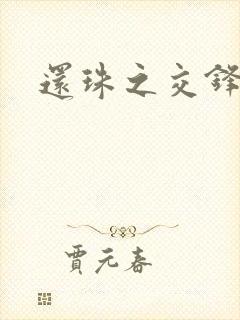 還珠之交鋒
賈元春